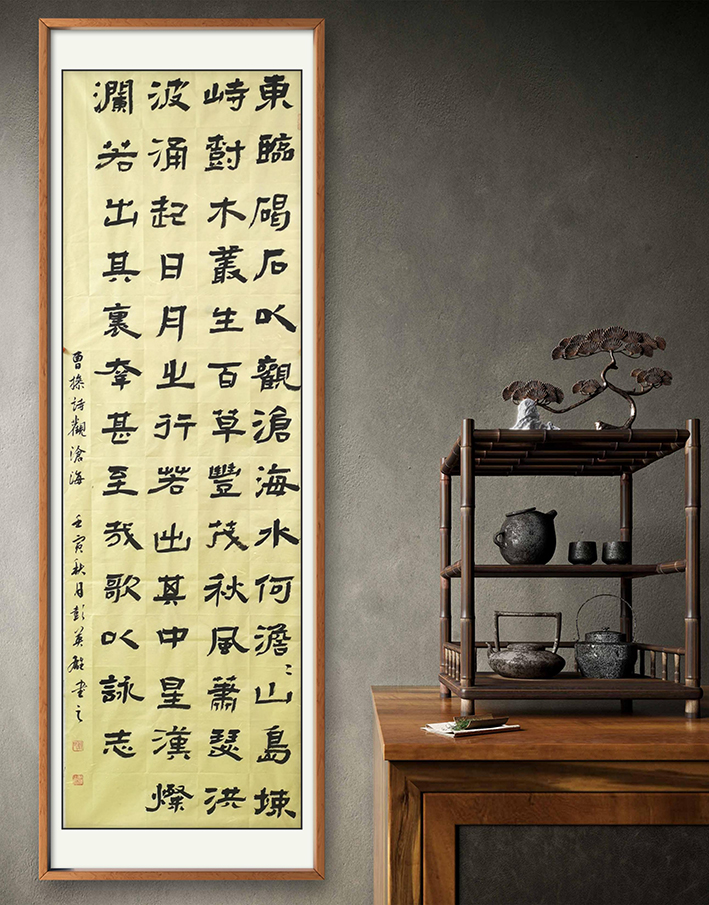 東臨碣石以觀滄海水何澹〻山島竦
峙樹木叢生百草豐茂秋風蕭瑟洪
波涌起日月之行若出其中星漢燦
瀾若出其裏幸甚至哉歌以詠志
曹操詩觀滄海 壬寅秋月彭英書之